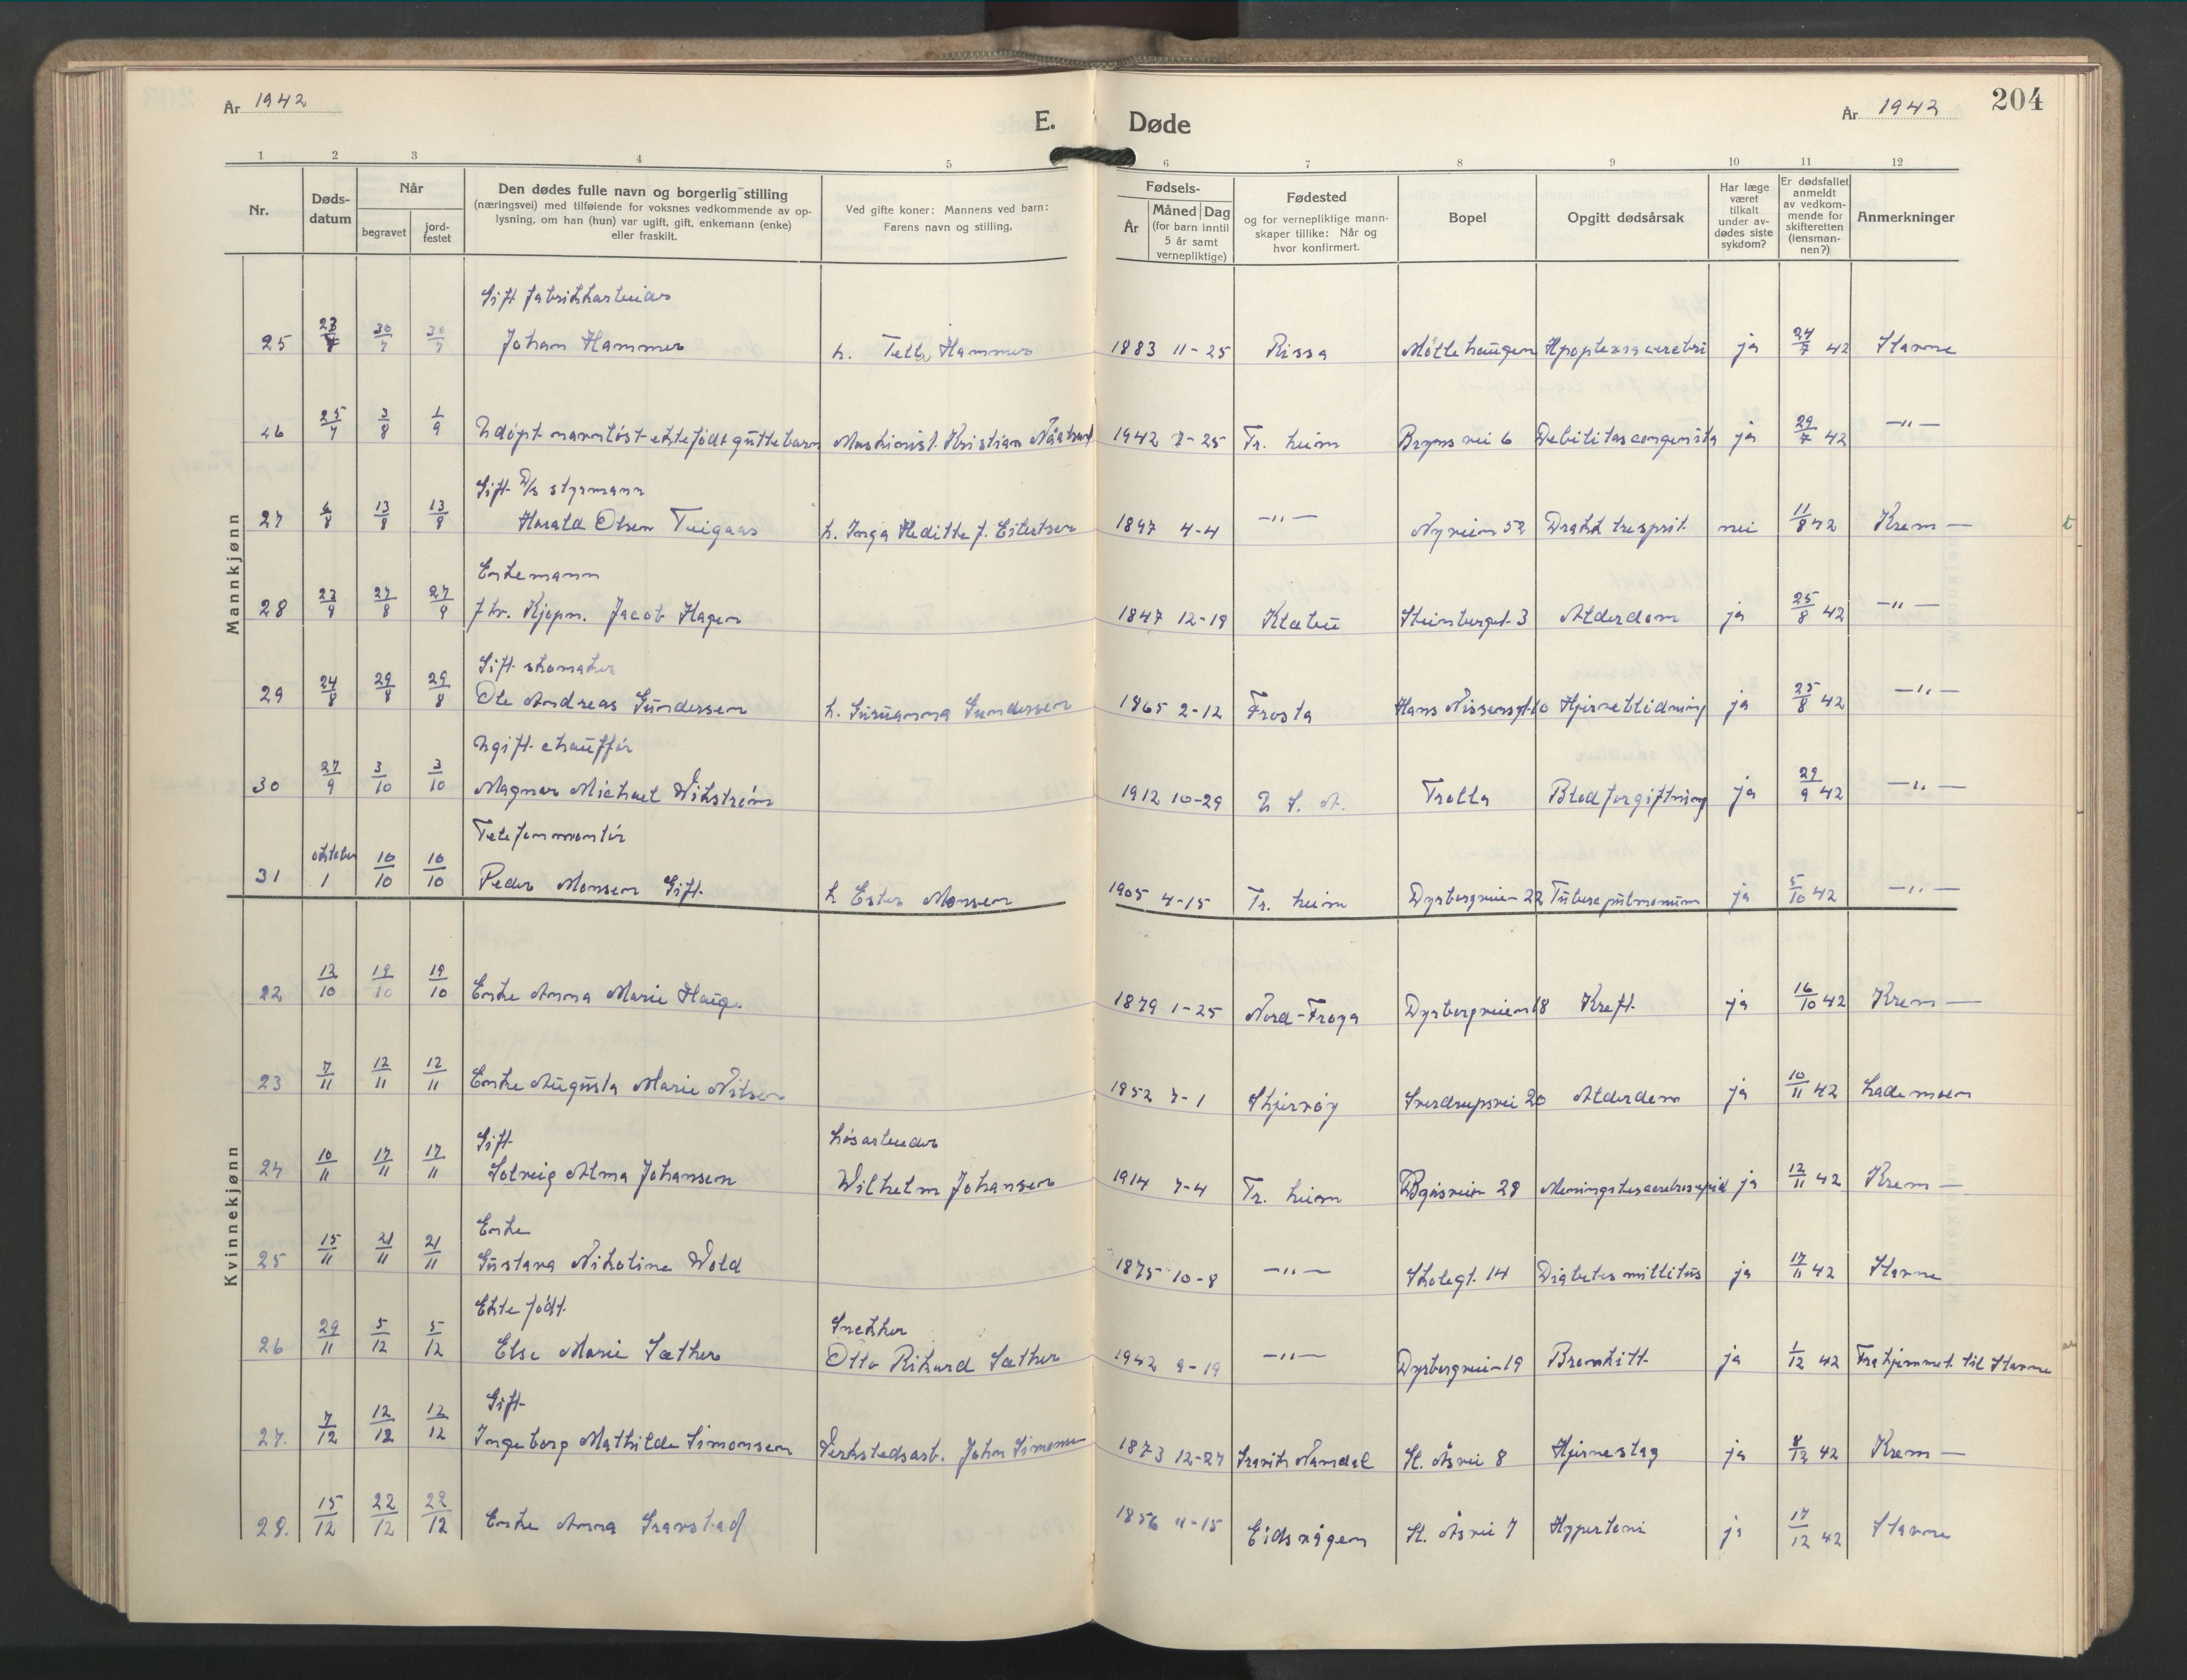 År 1942
E.
Døde
År 1942
204
1 2 3 4 5 6 7 8 9 10 11 12
Nr.
Døds-
datum
Når
begravet
jord-
festet
Den dødes fulle navn og borgerlig stilling
(næringsvei) med tilføiende for voksnes vedkommende av op-
lysning, om han (hun) var ugift, gift, enkemann (enke)
eller fraskilt.
Ved gifte koner: Mannens ved barn:
Farens navn og stilling.
Fødsels-
År
Måned Dag
(for barn inntil
5 år samt
vernepliktige)
Fødested
og for vernepliktige mann-
skaper tillike: Når og
hvor konfirmert.
Bopel
Opgitt dødsårsak
Har læge
været
tilkalt
under av-
dødes siste
sykdom?
Er dødsfallet
anmeldt
av vedkom-
mende for
skifteretten
(lensman-
nen?)
Anmerkninger
Mannkjønn
Gift fabrikkarbeider
25 23/7 30/7 30/7 Johan Hammer h. Tella Hammer 1883 11-25 Rissa Møllehaugen Apoplexia cerebri ja 24/7 42 Stavne
26 25/7 3/8 1/9 Udøpt navnløst ektefødt guttebarn Maskinist. Kristian 1942 7-25 Tr. heim Bryns vei 6 Debilitas congenita ja 29/7 42 -"-
Gift D/s styrmann
27 6/8 13/8 13/8 Harald Olsen Tuigaas h. Inga Heditte f. Eilertsen 1897 4-4 -"- Nyveien 52 Drakk tresprit nei 11/8 42 Krem-
Enkemann
28 23/8 27/8 27/8 fhv. Kjøpm. Jacob Hagen 1847 12-19 Klæbu Steinberget 3 Alderdom ja 25/8 42 -"-
Gift skomaker
29 24/8 29/8 29/8 Ole Andreas Gundersen h. Gundersen 1865 2-12 Frosta Hans Nissensgt. 10 Hjerneblødning ja 25/8 42 -"-
Ugift chauffør
30 27/9 3/10 3/10 Magnar Michael Wikstrøm 1912 10-29 U.S.A. Trolla Blodforgiftning ja 29/9 42 -"-
Telefonmontør
oktober
31 1 10/10 10/10 Peder Monsen Gift h Ester Monsen 1905 4-15 Tr. heim Dyrborgveien 22 Tuberc pulmonum ja 5/10 42 -"-
Kvinnekjønn
22 12/10 19/10 19/10 Enke Anna Marie Haug. 1879 1-25 Nord-Frøya Dyrborgveien 18 Kreft ja 16/10 42 Krem-
23 7/11 12/11 12/11 Enke Augusta Marie Nilsen 1852 7-1 Skjervøy Sverdrupsvei 20 Alderdom ja 10/11 42 Lademoen
Gift Løsarbeider
24 10/11 17/11 17/11 Solveig Alma Johansen Wilhelm Johansen 1914 7-4 Tr. heim Byåsveien 28 ja 12/11 42 Krem-
Enke
25 15/11 21/11 21/11 Gustava Nikoline Wold 1875 10-8 -"- Skolegt. 14 Diabetes mellitus ja 17/11 42 Stavne
Ekte født Snekker
26 29/11 5/12 5/12 Else Marie Sæther Otto Rikard Sæther 1942 9-19 -"- Dyrborgveien 19 Bronkitt ja 1/12 42 Fra hjemmet til Stavne
Gift
27. 7/12 12/12 12/12 Ingeborg Mathilde Simonsen Verkstedsarb. Johan Simonsen 1873 12-27 Gravik Namdal St. Åsvei 8 Hjerneslag ja 8/12 42 Krem-
28. 15/12 22/12 22/12 Enke Anna Granstad 1856 4-15 Eidsvågen St. Åsvei 7 Hypertoni ja 17/12 42 Stavne